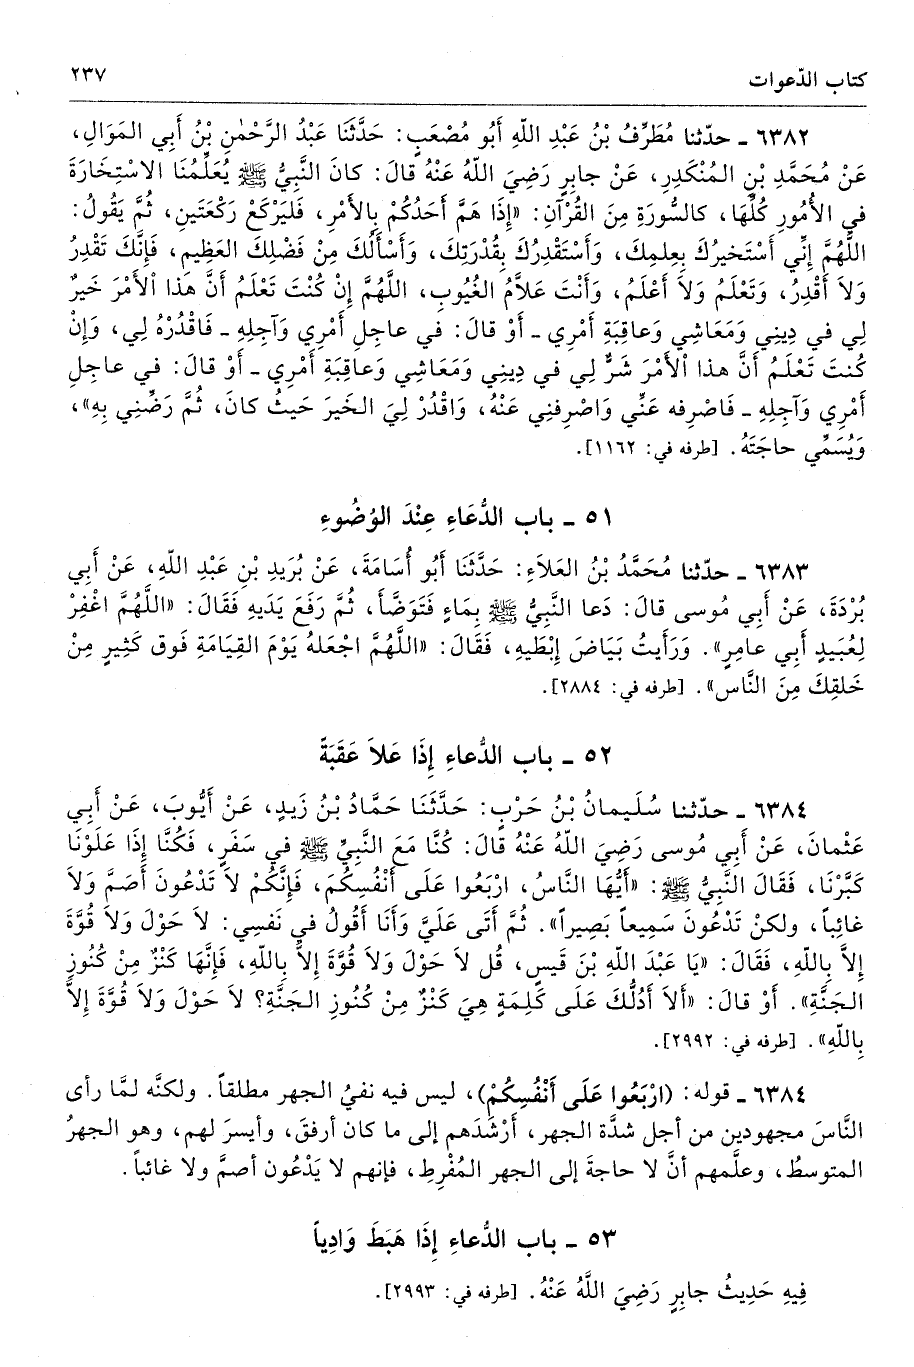 كتاب الدّعوات
٢٣٧
٦٣٨٢ ـ حدّثنا مُطَرِّفُ بْنُ عَبْدِ اللّهِ أَبُو مُصْعَبٍ: حَدَّثَنَا عَبْدُ الرَّحْمٰنِ بْنُ أَبِي المَوَالِ،
عَنْ مُحَمَّدِ بْنِ المُنْكَدِرِ، عَنْ جابِرٍ رَضِيَ اللّهُ عَنْهُ قالَ: كانَ النَّبِيُّ ﷺ يُعَلِّمُنَا الاسْتِخَارَةَ
في الأُمُورِ كُلِّهَا، كالسُّورَةِ مِنَ القُرْآنِ: «إِذَا هَمَّ أَحَدُكُمْ بِالأَمْرِ، فَليَرْكَعْ رَكْعَتَينِ، ثُمَّ يَقُولُ:
اللَّهُمَّ إِنِّي أَسْتَخِيرُكَ بِعِلمِكَ، وَأَسْتَقْدِرُكَ بِقُدْرَتِكَ، وَأَسْأَلُكَ مِنْ فَضْلِكَ العَظِيمِ، فَإِنَّكَ تَقْدِرُ
وَلاَ أَقْدِرُ، وَتَعْلَمُ وَلاَ أَعْلَمُ، وَأَنْتَ عَلاَّمُ الغُيُوبِ، اللَّهُمَّ إِنْ كُنْتَ تَعْلَمُ أَنَّ هَذا الأَمْرَ خَيرٌ
لِي في دِينِي وَمَعَاشِي وَعاقِبَةِ أَمْرِي ـ أَوْ قالَ: في عاجِلِ أَمْرِي وَآجِلِهِ ـ فَاقْدُرْهُ لِي، وَإِنْ
كُنتَ تَعْلَمُ أَنَّ هذا الأَمْرَ شَرٌّ لِي في دِينِي وَمَعَاشِي وَعاقِبَةِ أَمْرِي ـ أَوْ قالَ: في عاجِلِ
أَمْرِي وَآجِلِهِ ـ فَاصْرِفه عَنِّي وَاصْرِفنِي عَنْهُ، وَاقْدُرْ لِيَ الخَيرَ حَيثُ كانَ، ثُمَّ رَضِّنِي بِهِ»،
وَيُسَمِّي حاجَتَهُ. [طرفه في: ١١٦٢].
٥١ ـ باب الدُّعَاءِ عِنْدَ الوُضُوءِ
٦٣٨٣ ـ حدّثنا مُحَمَّدُ بْنُ العَلاَءِ: حَدَّثَنَا أَبُو أُسَامَةَ، عَنْ بُرَيدِ بْنِ عَبْدِ اللّهِ، عَنْ أَبِي
بُرْدَةَ، عَنْ أَبِي مُوسى قالَ: دَعا النَّبِيُّ ﷺ بِمَاءٍ فَتَوَضَّأَ، ثُمَّ رَفَعَ يَدَيهِ فَقَالَ: «اللَّهُمَّ اغْفِرْ
لِعُبَيدٍ أَبِي عامِرٍ». وَرَأَيتُ بَيَاضَ إِبْطَيهِ، فَقَالَ: «اللَّهُمَّ اجْعَلهُ يَوْمَ القِيَامَةِ فَوق كَثِيرٍ مِنْ
خَلقِكَ مِنَ النَّاس». [طرفه في: ٢٨٨٤].
٥٢ ـ باب الدُّعاءِ إِذَا عَلاَ عَقَبَةً
٦٣٨٤ ـ حدّثنا سُلَيمانُ بْنُ حَرْبٍ: حَدَّثَنَا حَمَّادُ بْنُ زَيدٍ، عَنْ أَيُّوبَ، عَنْ أَبِي
عَثْمانَ، عَنْ أَبِي مُوسى رَضِيَ اللّهُ عَنْهُ قالَ: كُنَّا مَعَ النَّبِيِّ ﷺ في سَفَرٍ، فَكُنَّا إِذَا عَلَوْنَا
كَبَّرْنَا، فَقَالَ النَّبِيُّ ﷺ: «أَيُّهَا النَّاسُ، ارْبَعُوا عَلَى أَنْفُسِكُمَ، فَإِنَّكُمْ لاَ تَدْعُونَ أَصَمَّ وَلاَ
غائِباً، ولكنْ تَدْعُونَ سَمِيعاً بَصِيراً». ثُمَّ أَتَى عَلَيَّ وَأَنَا أَقُولُ في نَفسِي: لاَ حَوْلَ وَلاَ قُوَّةَ
إِلاَّ بِاللّهِ، فَقَالَ: «يَا عَبْدَ اللّهِ بْنَ قَيسٍ، قُل لاَ حَوْلَ وَلاَ قُوَّةَ إِلاَّ بِاللّهِ، فَإِنَّهَا كَنْزٌ مِنْ كُنُوزِ
الجَنَّةِ». أَوْ قالَ: «أَلاَ أَدُلُّكَ عَلَى كَلِمَةٍ هِيَ كَنْزٌ مِنْ كُنُوزِ الجَنَّةِ؟ لاَ حَوْلَ وَلاَ قُوَّةَ إِلاَّ
بِاللّهِ». [طرفه في: ٢٩٩٢].
٦٣٨٤ ـ قوله: (ارْبَعُوا عَلَى أَنْفُسِكُمْ)، ليس فيه نفيُ الجهر مطلقاً. ولكنَّه لمَّا رأى
النَّاسَ مجهودين من أجل شدَّة الجهر، أَرْشَدَهم إلى ما كان أرفقَ، وأيسرَ لهم، وهو الجهرُ
المتوسطُ، وعلَّمهم أنَّ لا حاجةَ إلى الجهر المُفْرِطِ، فإنهم لا يَدْعُون أصمَّ ولا غائباً.
٥٣ ـ باب الدُّعاءِ إِذَا هَبَطَ وَادِياً
فِيهِ حَدِيثُ جابِرٍ رَضِيَ اللَّهُ عَنْهُ. [طرفه في: ٢٩٩٣].